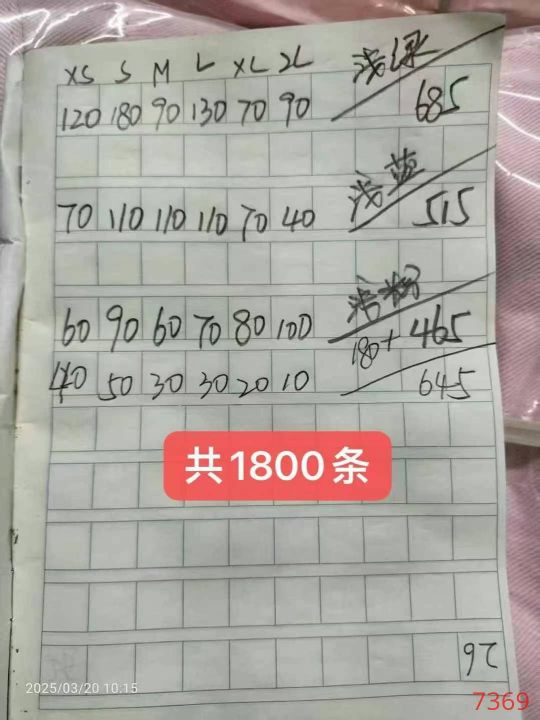 XS S M L XL 2L 浅绿
120 180 90 130 70 90 685
浅蓝
70 110 110 110 70 40 515
浅粉
60 90 60 70 80 100 180+ 465
40 50 30 30 20 10 645
共1800条
92
2025/03/20 10:15
7369